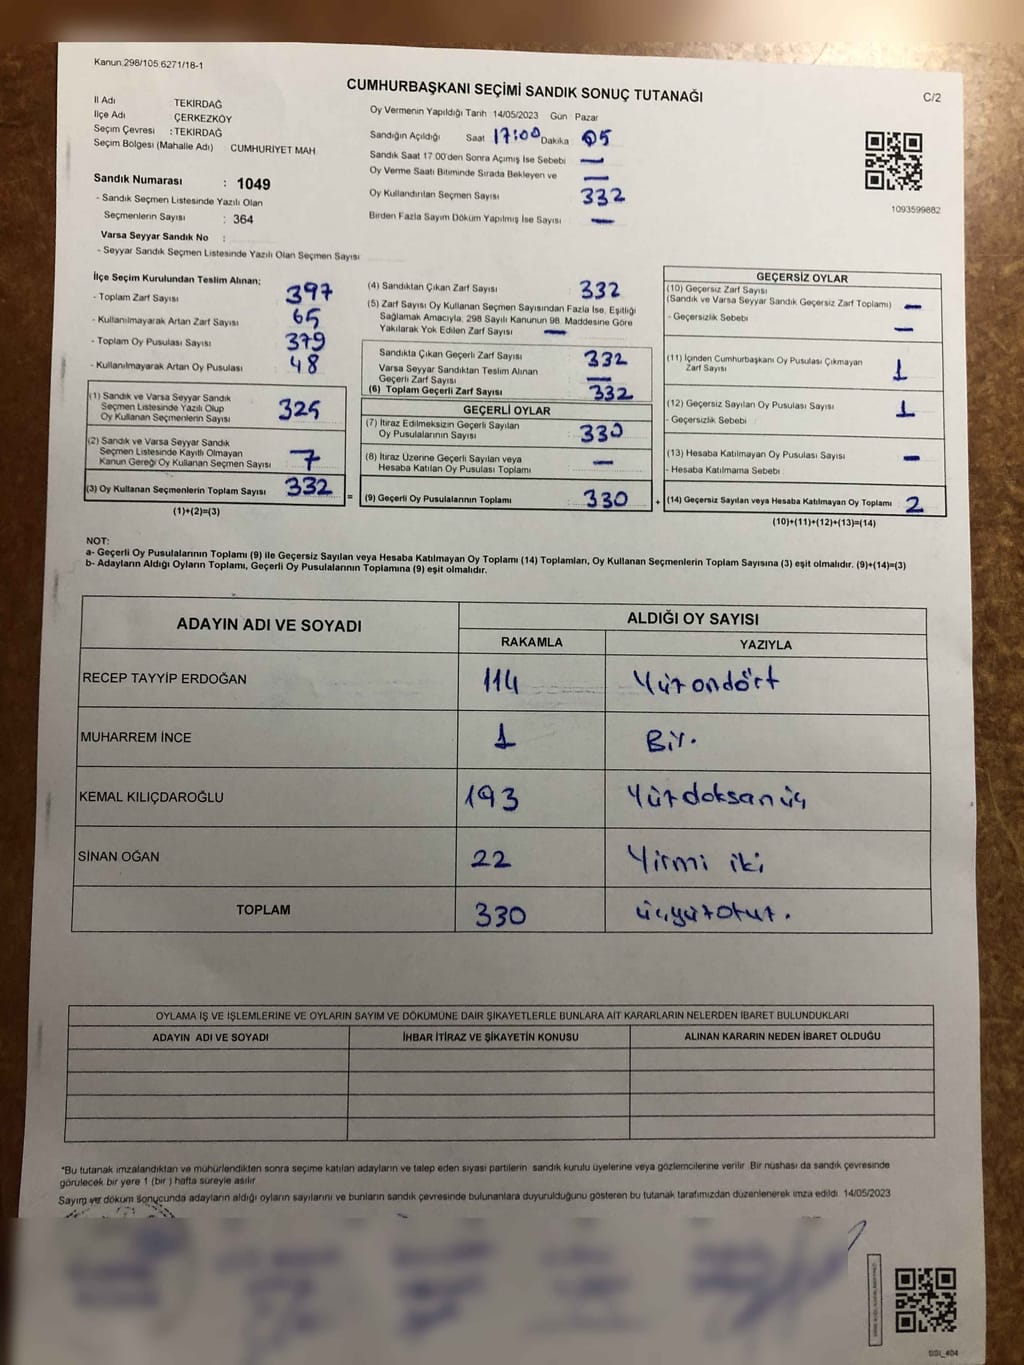 Kanun.298/105.6271/18-1
CUMHURBAŞKANI SEÇİMİ SANDIK SONUÇ TUTANAĞI
C/2
İl Adı TEKİRDAĞ
İlçe Adı ÇERKEZKÖY
Seçim Çevresi : TEKİRDAĞ
Seçim Bölgesi (Mahalle Adı) CUMHURİYET MAH.
Sandık Numarası : 1049
- Sandık Seçmen Listesinde Yazılı Olan
Seçmenlerin Sayısı : 364
Varsa Seyyar Sandık No :
- Seyyar Sandık Seçmen Listesinde Yazılı Olan Seçmen Sayısı
Oy Vermenin Yapıldığı Tarih 14/05/2023 Gün Pazar
Sandığın Açıldığı Saat 17:00 Dakika 05
Sandık Saat 17.00'den Sonra Açımış İse Sebebi —
Oy Verme Saati Bitiminde Sırada Bekleyen ve —
Oy Kullandırılan Seçmen Sayısı 332
Birden Fazla Sayım Döküm Yapılmış İse Sayısı —
1093599882
İlçe Seçim Kurulundan Teslim Alınan;
- Toplam Zarf Sayısı 397
- Kullanılmayarak Artan Zarf Sayısı 65
- Toplam Oy Pusulası Sayısı 379
- Kullanılmayarak Artan Oy Pusulası 48
(1) Sandık ve Varsa Seyyar Sandık
Seçmen Listesinde Yazılı Olup
Oy Kullanan Seçmenlerin Sayısı 325
(2) Sandık ve Varsa Seyyar Sandık
Seçmen Listesinde Kayıtlı Olmayan
Kanun Gereği Oy Kullanan Seçmen Sayısı 7
(3) Oy Kullanan Seçmenlerin Toplam Sayısı 332
(1)+(2)=(3)
(4) Sandıktan Çıkan Zarf Sayısı 332
(5) Zarf Sayısı Oy Kullanan Seçmen Sayısından Fazla İse, Eşitliği
Sağlamak Amacıyla, 298 Sayılı Kanunun 98. Maddesine Göre
Yakılarak Yok Edilen Zarf Sayısı —
Sandıkta Çıkan Geçerli Zarf Sayısı 332
Varsa Seyyar Sandıktan Teslim Alınan
Geçerli Zarf Sayısı —
(6) Toplam Geçerli Zarf Sayısı 332
GEÇERLİ OYLAR
(7) İtiraz Edilmeksizin Geçerli Sayılan
Oy Pusulalarının Sayısı 330
(8) İtiraz Üzerine Geçerli Sayılan veya
Hesaba Katılan Oy Pusulası Toplamı —
= (9) Geçerli Oy Pusulalarının Toplamı 330
GEÇERSİZ OYLAR
(10) Geçersiz Zarf Sayısı
(Sandık ve Varsa Seyyar Sandık Geçersiz Zarf Toplamı) —
- Geçersizlik Sebebi —
(11) İçinden Cumhurbaşkanı Oy Pusulası Çıkmayan
Zarf Sayısı 1
(12) Geçersiz Sayılan Oy Pusulası Sayısı 1
- Geçersizlik Sebebi
(13) Hesaba Katılmayan Oy Pusulası Sayısı —
- Hesaba Katılmama Sebebi
+ (14) Geçersiz Sayılan veya Hesaba Katılmayan Oy Toplamı 2
(10)+(11)+(12)+(13)=(14)
NOT:
a- Geçerli Oy Pusulalarının Toplamı (9) ile Geçersiz Sayılan veya Hesaba Katılmayan Oy Toplamı (14) Toplamları, Oy Kullanan Seçmenlerin Toplam Sayısına (3) eşit olmalıdır. (9)+(14)=(3)
b- Adayların Aldığı Oyların Toplamı, Geçerli Oy Pusulalarının Toplamına (9) eşit olmalıdır.
ADAYIN ADI VE SOYADI ALDIĞI OY SAYISI
RAKAMLA YAZIYLA
RECEP TAYYİP ERDOĞAN 114 Yüzondört
MUHARREM İNCE 1 Bir.
KEMAL KILIÇDAROĞLU 193 Yüzdoksanüç
SİNAN OĞAN 22 Yirmi iki
TOPLAM 330 üçyüzotuz.
OYLAMA İŞ VE İŞLEMLERİNE VE OYLARIN SAYIM VE DÖKÜMÜNE DAİR ŞİKAYETLERLE BUNLARA AİT KARARLARIN NELERDEN İBARET BULUNDUKLARI
ADAYIN ADI VE SOYADI İHBAR İTİRAZ VE ŞİKAYETİN KONUSU ALINAN KARARIN NEDEN İBARET OLDUĞU
*Bu tutanak imzalandıktan ve mühürlendikten sonra seçime katılan adayların ve talep eden siyasi partilerin sandık kurulu üyelerine veya gözlemcilerine verilir. Bir nüshası da sandık çevresinde
görülecek bir yere 1 (bir ) hafta süreyle asılır.
Sayım ve döküm sonucunda adayların aldığı oyların sayılarını ve bunların sandık çevresinde bulunanlara duyurulduğunu gösteren bu tutanak tarafımızdan düzenlenerek imza edildi. 14/05/2023